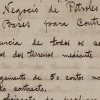 Negocio de Petroleo
Bases para Contr
ncia de todos os ac
dos terrenos mediante
gamento de 50 contos no
contracto.